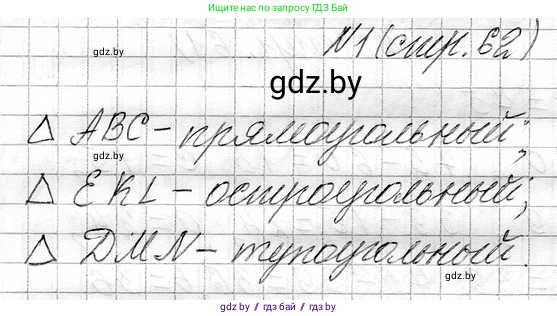 Ищите нас по запросу ГДЗ БАЙ
gdz.by
№1 (стр. 62)
gdz.by
△ ABC - прямоугольный;
gdz.by
△ EKL - остроугольный;
△ DMN - тупоугольный.
gdz.by
gdz.by / гдз бай / gdz.by